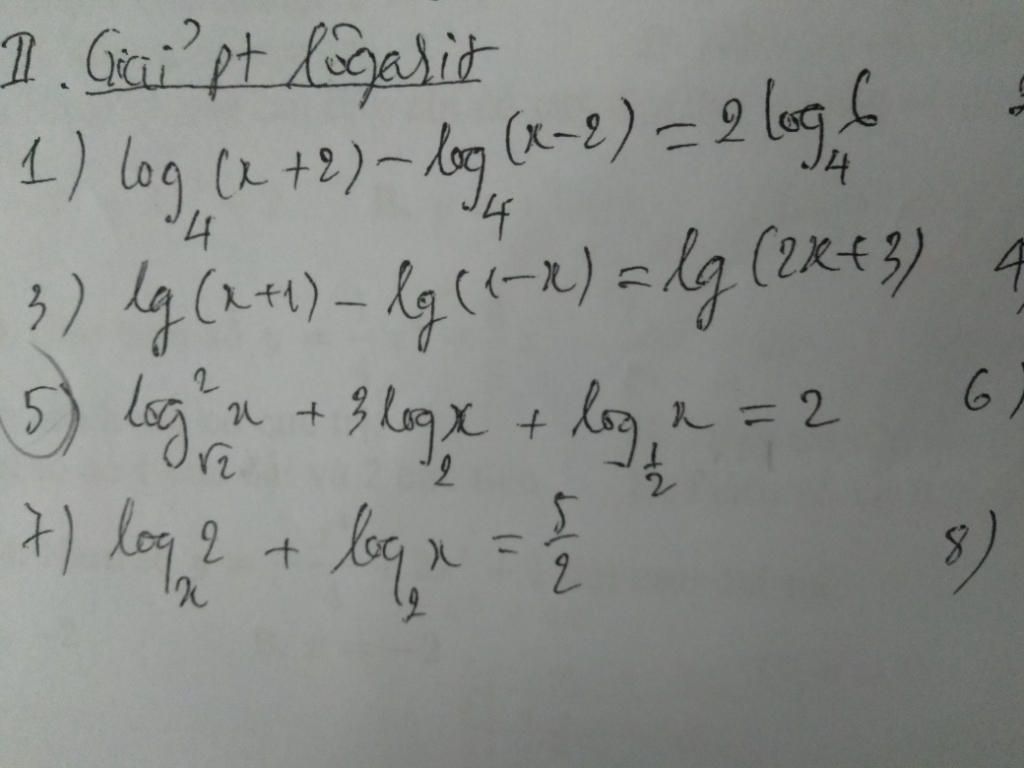 II. Giải pt lôgarit
1) log₄(x+2) - log₄(x-2) = 2log₄6
3) lg(x+1) - lg(1-x) = lg(2x+3) 4)
5) log²_√2 x + 3log₂x + log_1/2 x = 2 6)
7) logₓ2 + log₂x = 5/2 8)